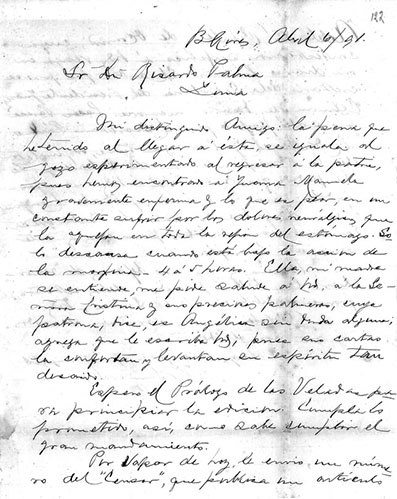 122
B Aires, Abril 6/91.
Sr. Dn. Ricardo Palma
Lima
Mi distinguido Amigo: la pena que
he tenido al llegar á esta, se iguala al
gozo esperimentado al regresar á la patria,
pues hemos encontrado á Juana Manuela
gravemente enferma y lo que es peor, en un
constante sufrir por los dolores neuralgicos que
la aquejan en toda la rejion del estómago. So
lo descansa cuando está bajo la accion de
la morfina - 4 á 5 horas. Ella, mi madre
se entiende, me pide salude á Vd, á la Se-
ñora Cristina y sus preciosos palmeros, cuya
patrona, dice, es Angélica sin duda alguna;
agrega que le escriba Vd, pues sus cartas
la confortan y levantan su espíritu tan
decaido.
Espero el Prólogo de las Veladas pa-
ra principiar la edicion. Cumpla lo
prometido, así, como sabe cumplir el
gran mandamiento.
Por Vapor de hoy, le envio un núme-
ro del "Censor", que publica un artículo